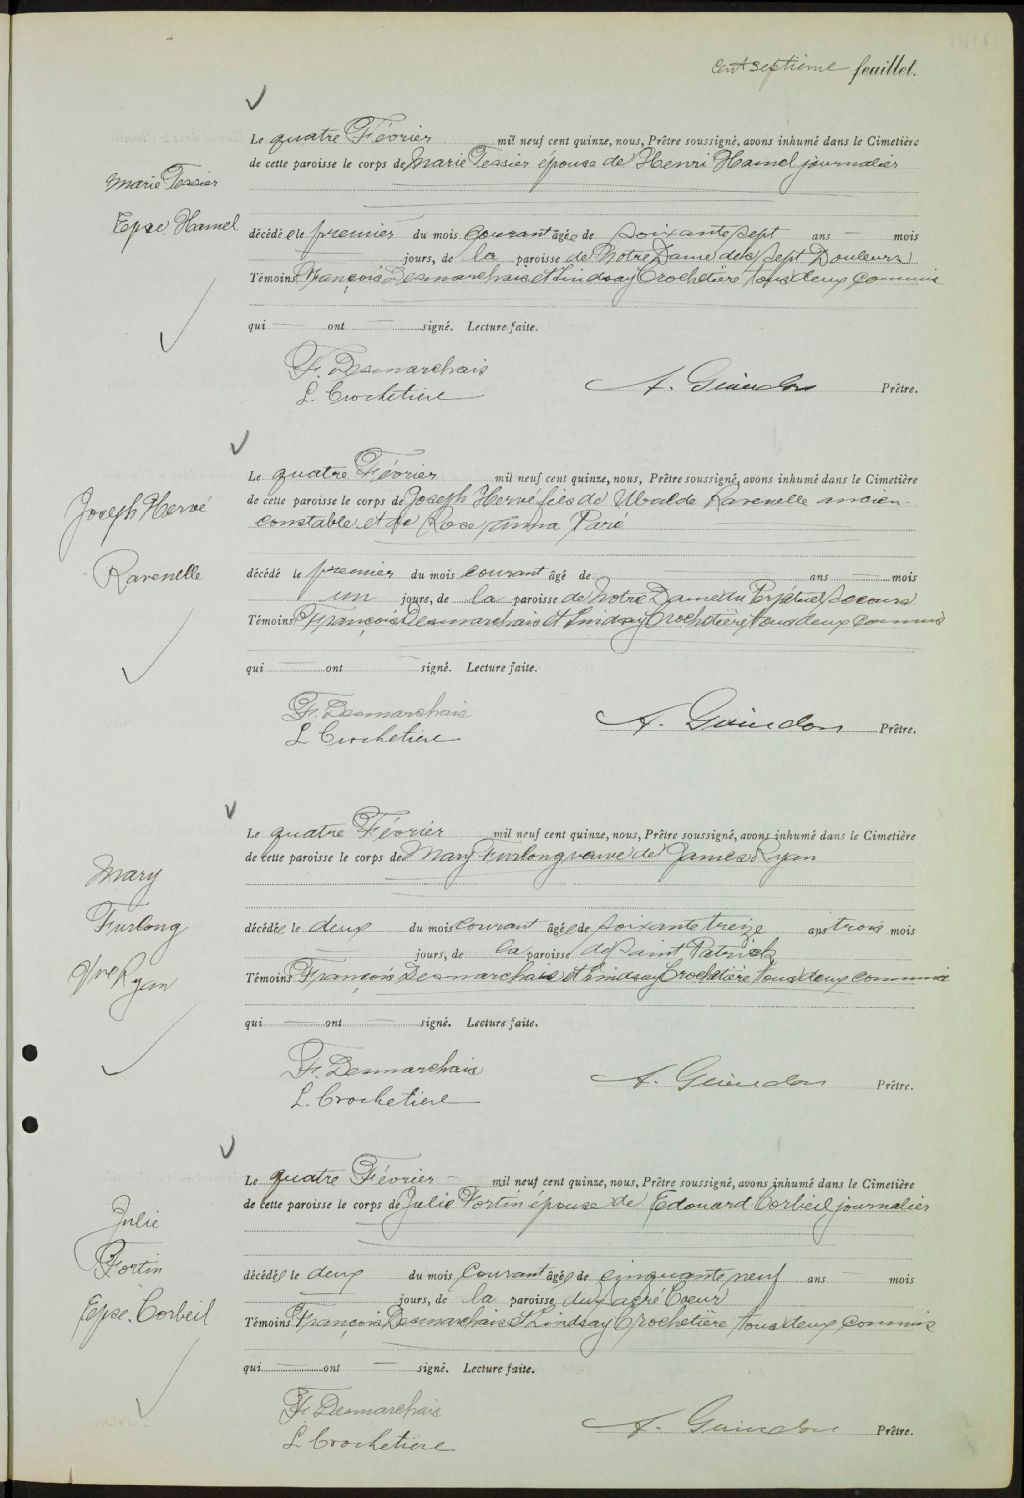 Cent septième feuillet.
Le quatre Février mil neuf cent quinze, nous, Prêtre soussigné, avons inhumé dans le Cimetière
de cette paroisse le corps de Marie Tessier épouse de Henri Hamel journalier
Marie Tessier
Epse. Hamel
décédée le premier du mois courant âgée de soixante sept ans — mois
— jours, de la paroisse de Notre Dame des Sept Douleurs
Témoins François Desmarchais et Lindsay Crochetière tous deux commis
qui — ont — signé. Lecture faite.
F. Desmarchais
L. Crochetiere
A. Guindon Prêtre.
Le quatre Février mil neuf cent quinze, nous, Prêtre soussigné, avons inhumé dans le Cimetière
de cette paroisse le corps de Joseph Hervé fils de Ubalde Ravenelle ancien
constable et de Rose Anna Paré
Joseph Hervé
Ravenelle
décédé le premier du mois courant âgé de — ans — mois
un jours, de la paroisse de Notre Dame du Perpétuel Secours
Témoins François Desmarchais et Lindsay Crochetière tous deux commis
qui — ont — signé. Lecture faite.
F. Desmarchais
L. Crochetiere
A. Guindon Prêtre.
Le quatre Février mil neuf cent quinze, nous, Prêtre soussigné, avons inhumé dans le Cimetière
de cette paroisse le corps de Mary Furlong veuve de James Ryan
Mary
Furlong
Vve Ryan
décédée le deux du mois courant âgée de soixante treize ans trois mois
— jours, de la paroisse de Saint Patrick
Témoins François Desmarchais et Lindsay Crochetière tous deux commis
qui — ont — signé. Lecture faite.
F. Desmarchais
L. Crochetiere
A. Guindon Prêtre.
Le quatre Février — mil neuf cent quinze, nous, Prêtre soussigné, avons inhumé dans le Cimetière
de cette paroisse le corps de Julie Fortin épouse de Edouard Corbeil journalier
Julie
Fortin
Epse. Corbeil
décédée le deux du mois courant âgée de cinquante neuf ans — mois
— jours, de la paroisse du Sacré Coeur
Témoins François Desmarchais et Lindsay Crochetière tous deux commis
qui — ont — signé. Lecture faite.
F. Desmarchais
L. Crochetiere
A. Guindon Prêtre.